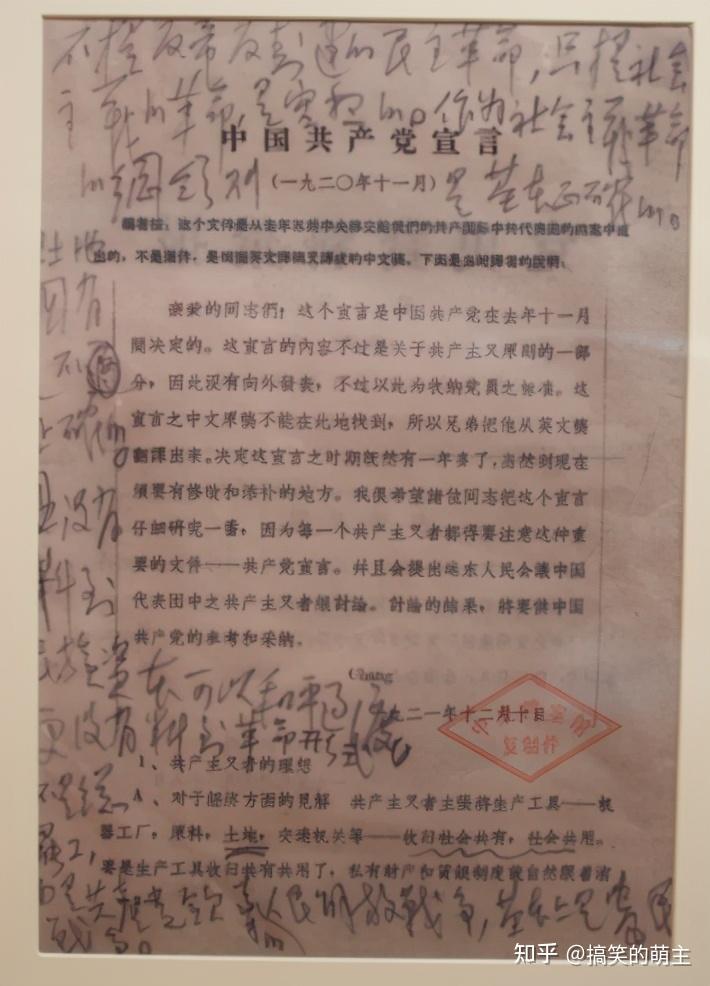 不提反帝反封建的民主革命，只提社会
主义的革命，是空想的。作为社会主义革命
的纲领则是基本正确的。
中国共产党宣言
（一九二〇年十一月）
编者按：这个文件是从去年苏共中央移交给我们的共产国际中共代表团的档案中选
出的，不是原件，是根据英文译稿又译成的中文稿。下面是当时译者的说明：
亲爱的同志們！这个宣言是中国共产党在去年十一月
間决定的。这宣言的內容不过是关于共产主义原則的一部
分，因此没有向外發表，不过以此为收納党員之标准。这
宣言之中文原稿不能在此地找到，所以兄弟把他从英文稿
翻譯出来。决定这宣言之时期既然有一年多了，当然到現在
須要有修改和添补的地方。我很希望諸位同志把这个宣言
仔細研究一番，因为每一个共产主义者都得要注意这种重
要的文件——共产党宣言。幷且会提出远东人民会議中国
代表团中之共产主义者組討論。討論的結果，將要供中国
共产党的参考和采納。
Chang
一九二一年十二月十日
复制件
1、共产主义者的理想
A、对于經济方面的見解　共产主义者主張將生产工具——机
器工厂，原料，土地，交通机关等——收归社会共有，社会共用。
要是生产工具收归共有共用了，私有財产和賃銀制度就自然跟着消
土地
国有
不
正确的。
且没有
料到
民族资本可以和平过渡。
更没有料到革命形式
不是总
罢工，
而是共产党领导的人民解放战争，基本上是农民
战争。
知乎 @搞笑的萌主